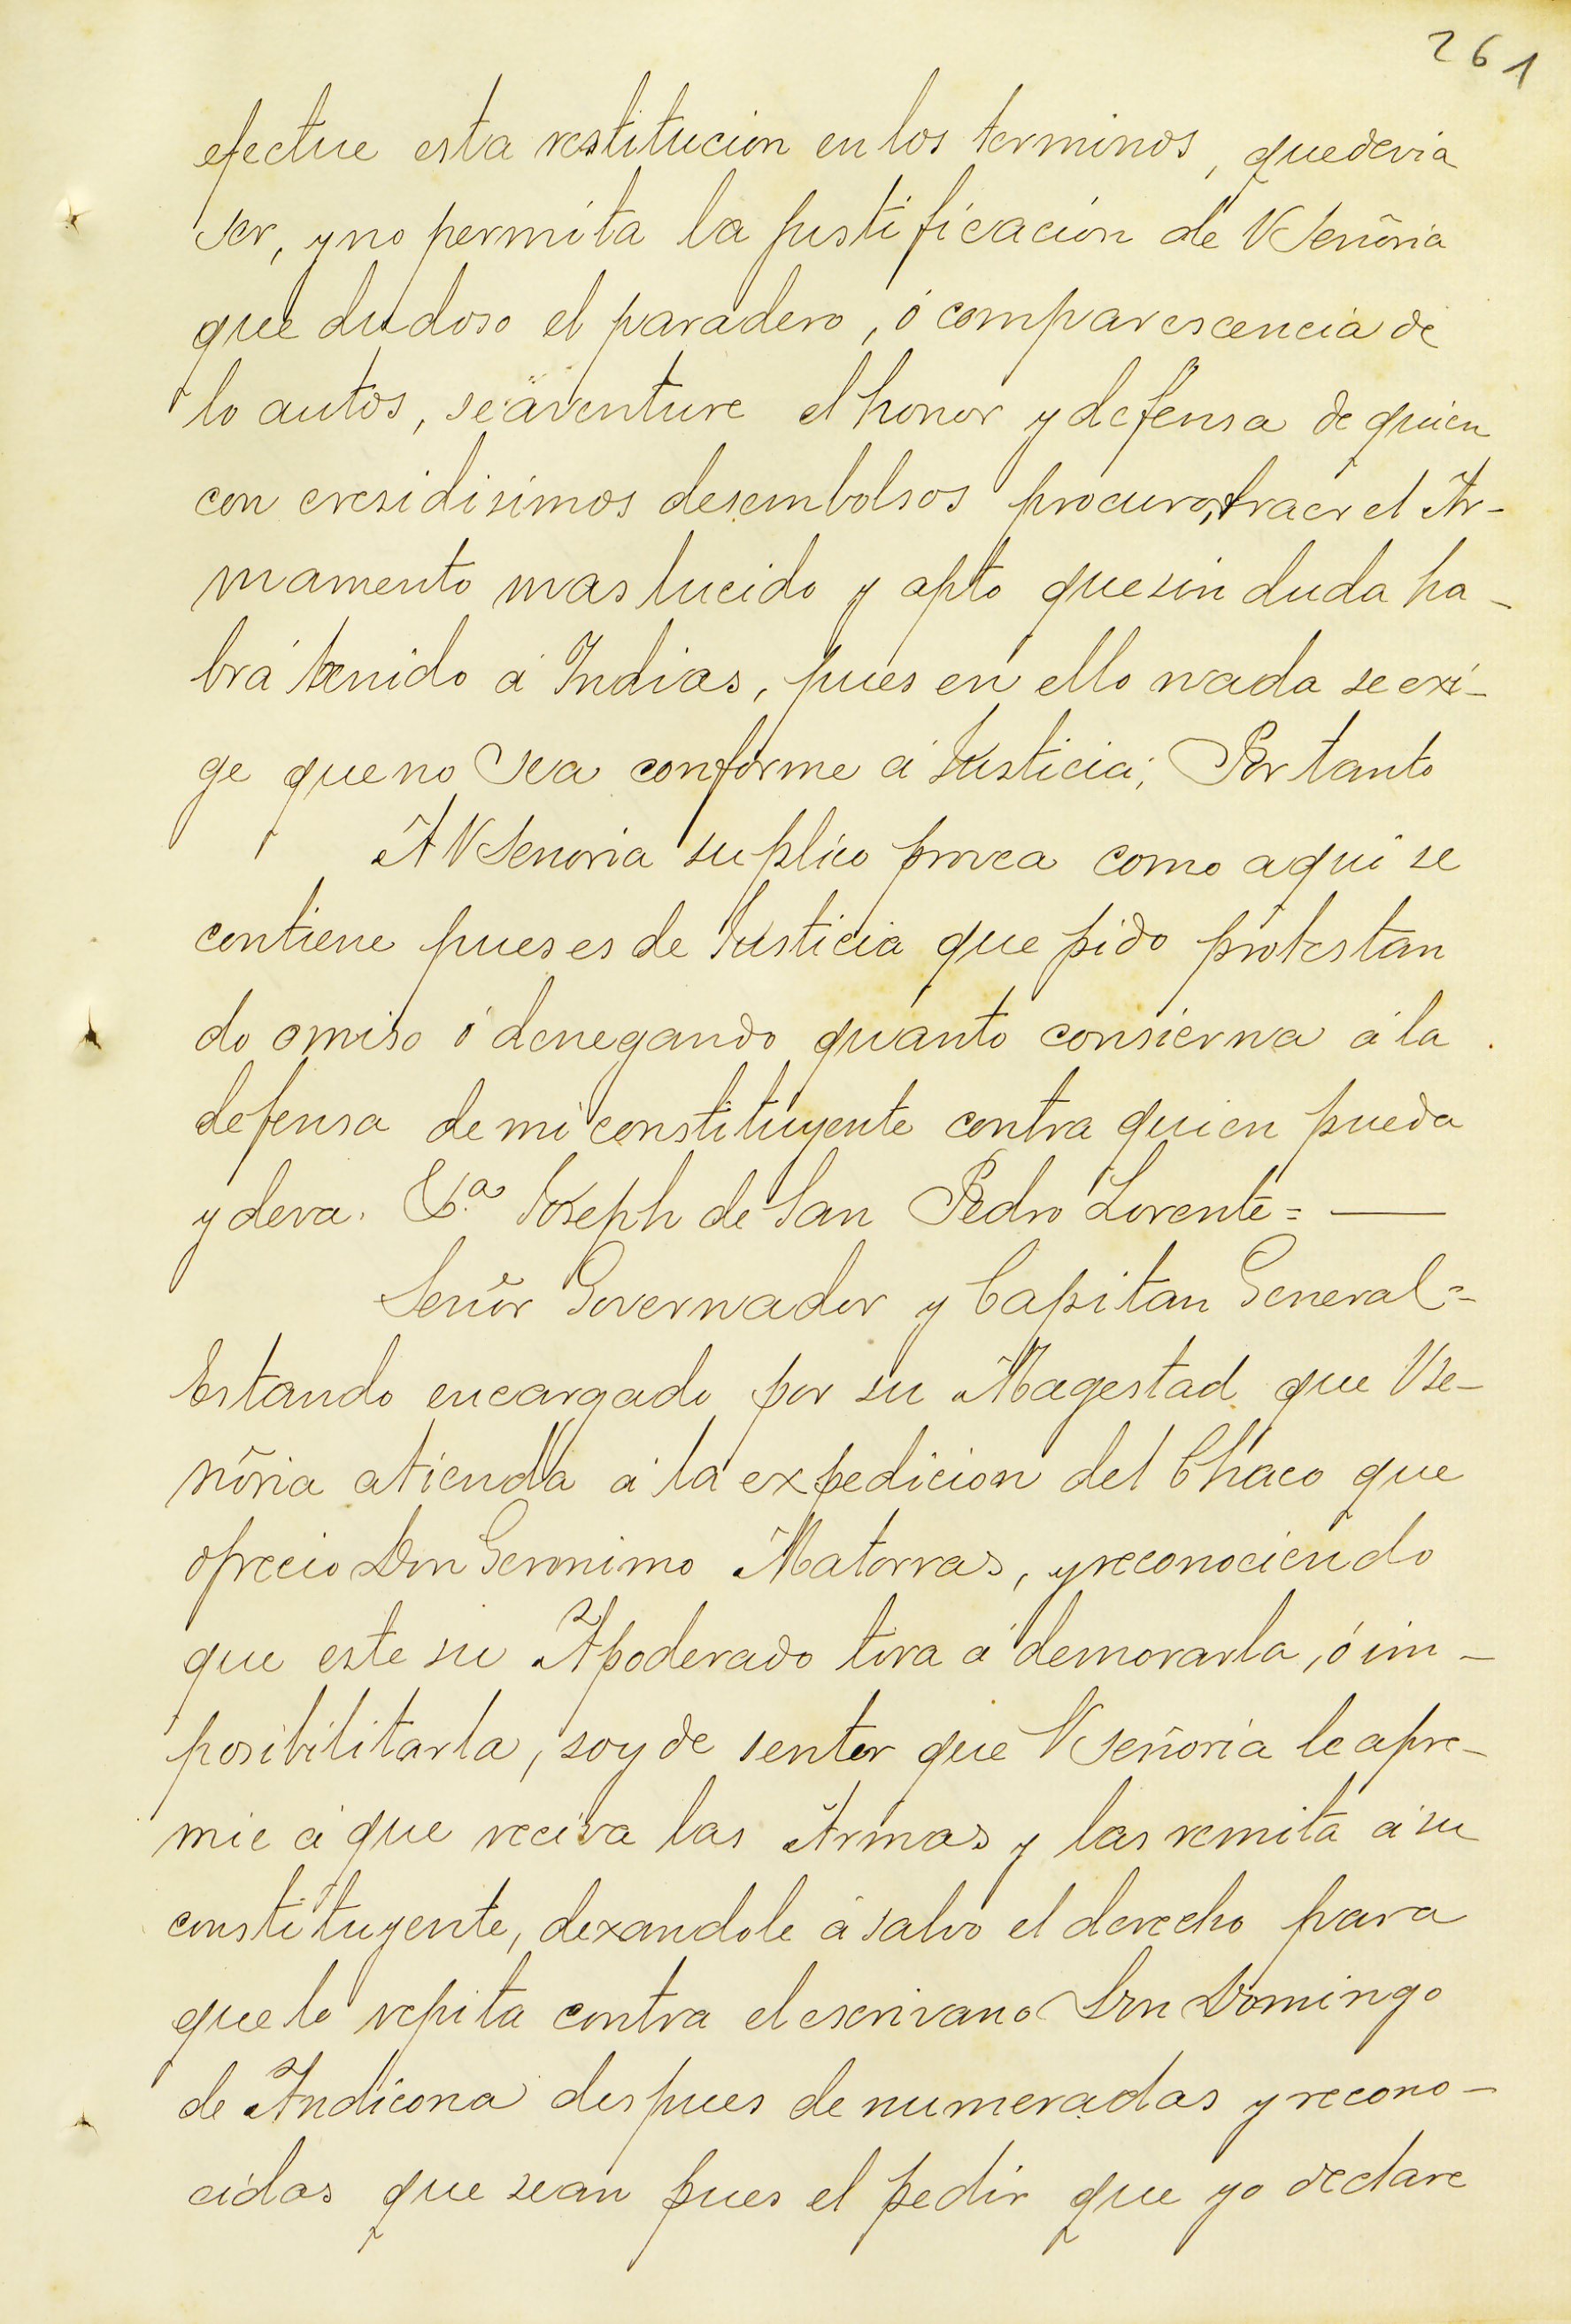 261
efectue esta restitucion en los terminos, que devia
ser, y no permita la justificacion de VSeñoria
que dudoso el paradero, ó comparescencia de
lo autos, se aventure el honor y defensa de quien
con cresidisimos desembolsos procuro, traer el Ar-
mamento mas lucido y apto que sin duda ha-
brá venido á Indias, pues en ello nada se exi-
ge que no sea conforme á Justicia; Por tanto
A VSenoria suplico provea como aqui se
contiene pues es de Justicia que pido protestan
do omiso ó denegando quanto consierna á la
defensa de mi constituyente contra quien pueda
y deva. &.a Joseph de San Pedro Lorente = —
Señor Governador y Capitan General =
Estando encargado por su Magestad que VSe-
ñoria atienda á la expedicion del Chaco que
ofrecio Don Geronimo Matorras, y reconociendo
que este su Apoderado tira á demorarla, ó im-
posibilitarla, soy de senter que VSeñoria le apre-
mie á que reciva las Armas y las remita á su
constituyente, dexandole á salvo el derecho para
que lo repita contra el escrivano Don Domingo
de Andicona despues de numeradas y recono-
cidas que sean pues el pedir que yo declare